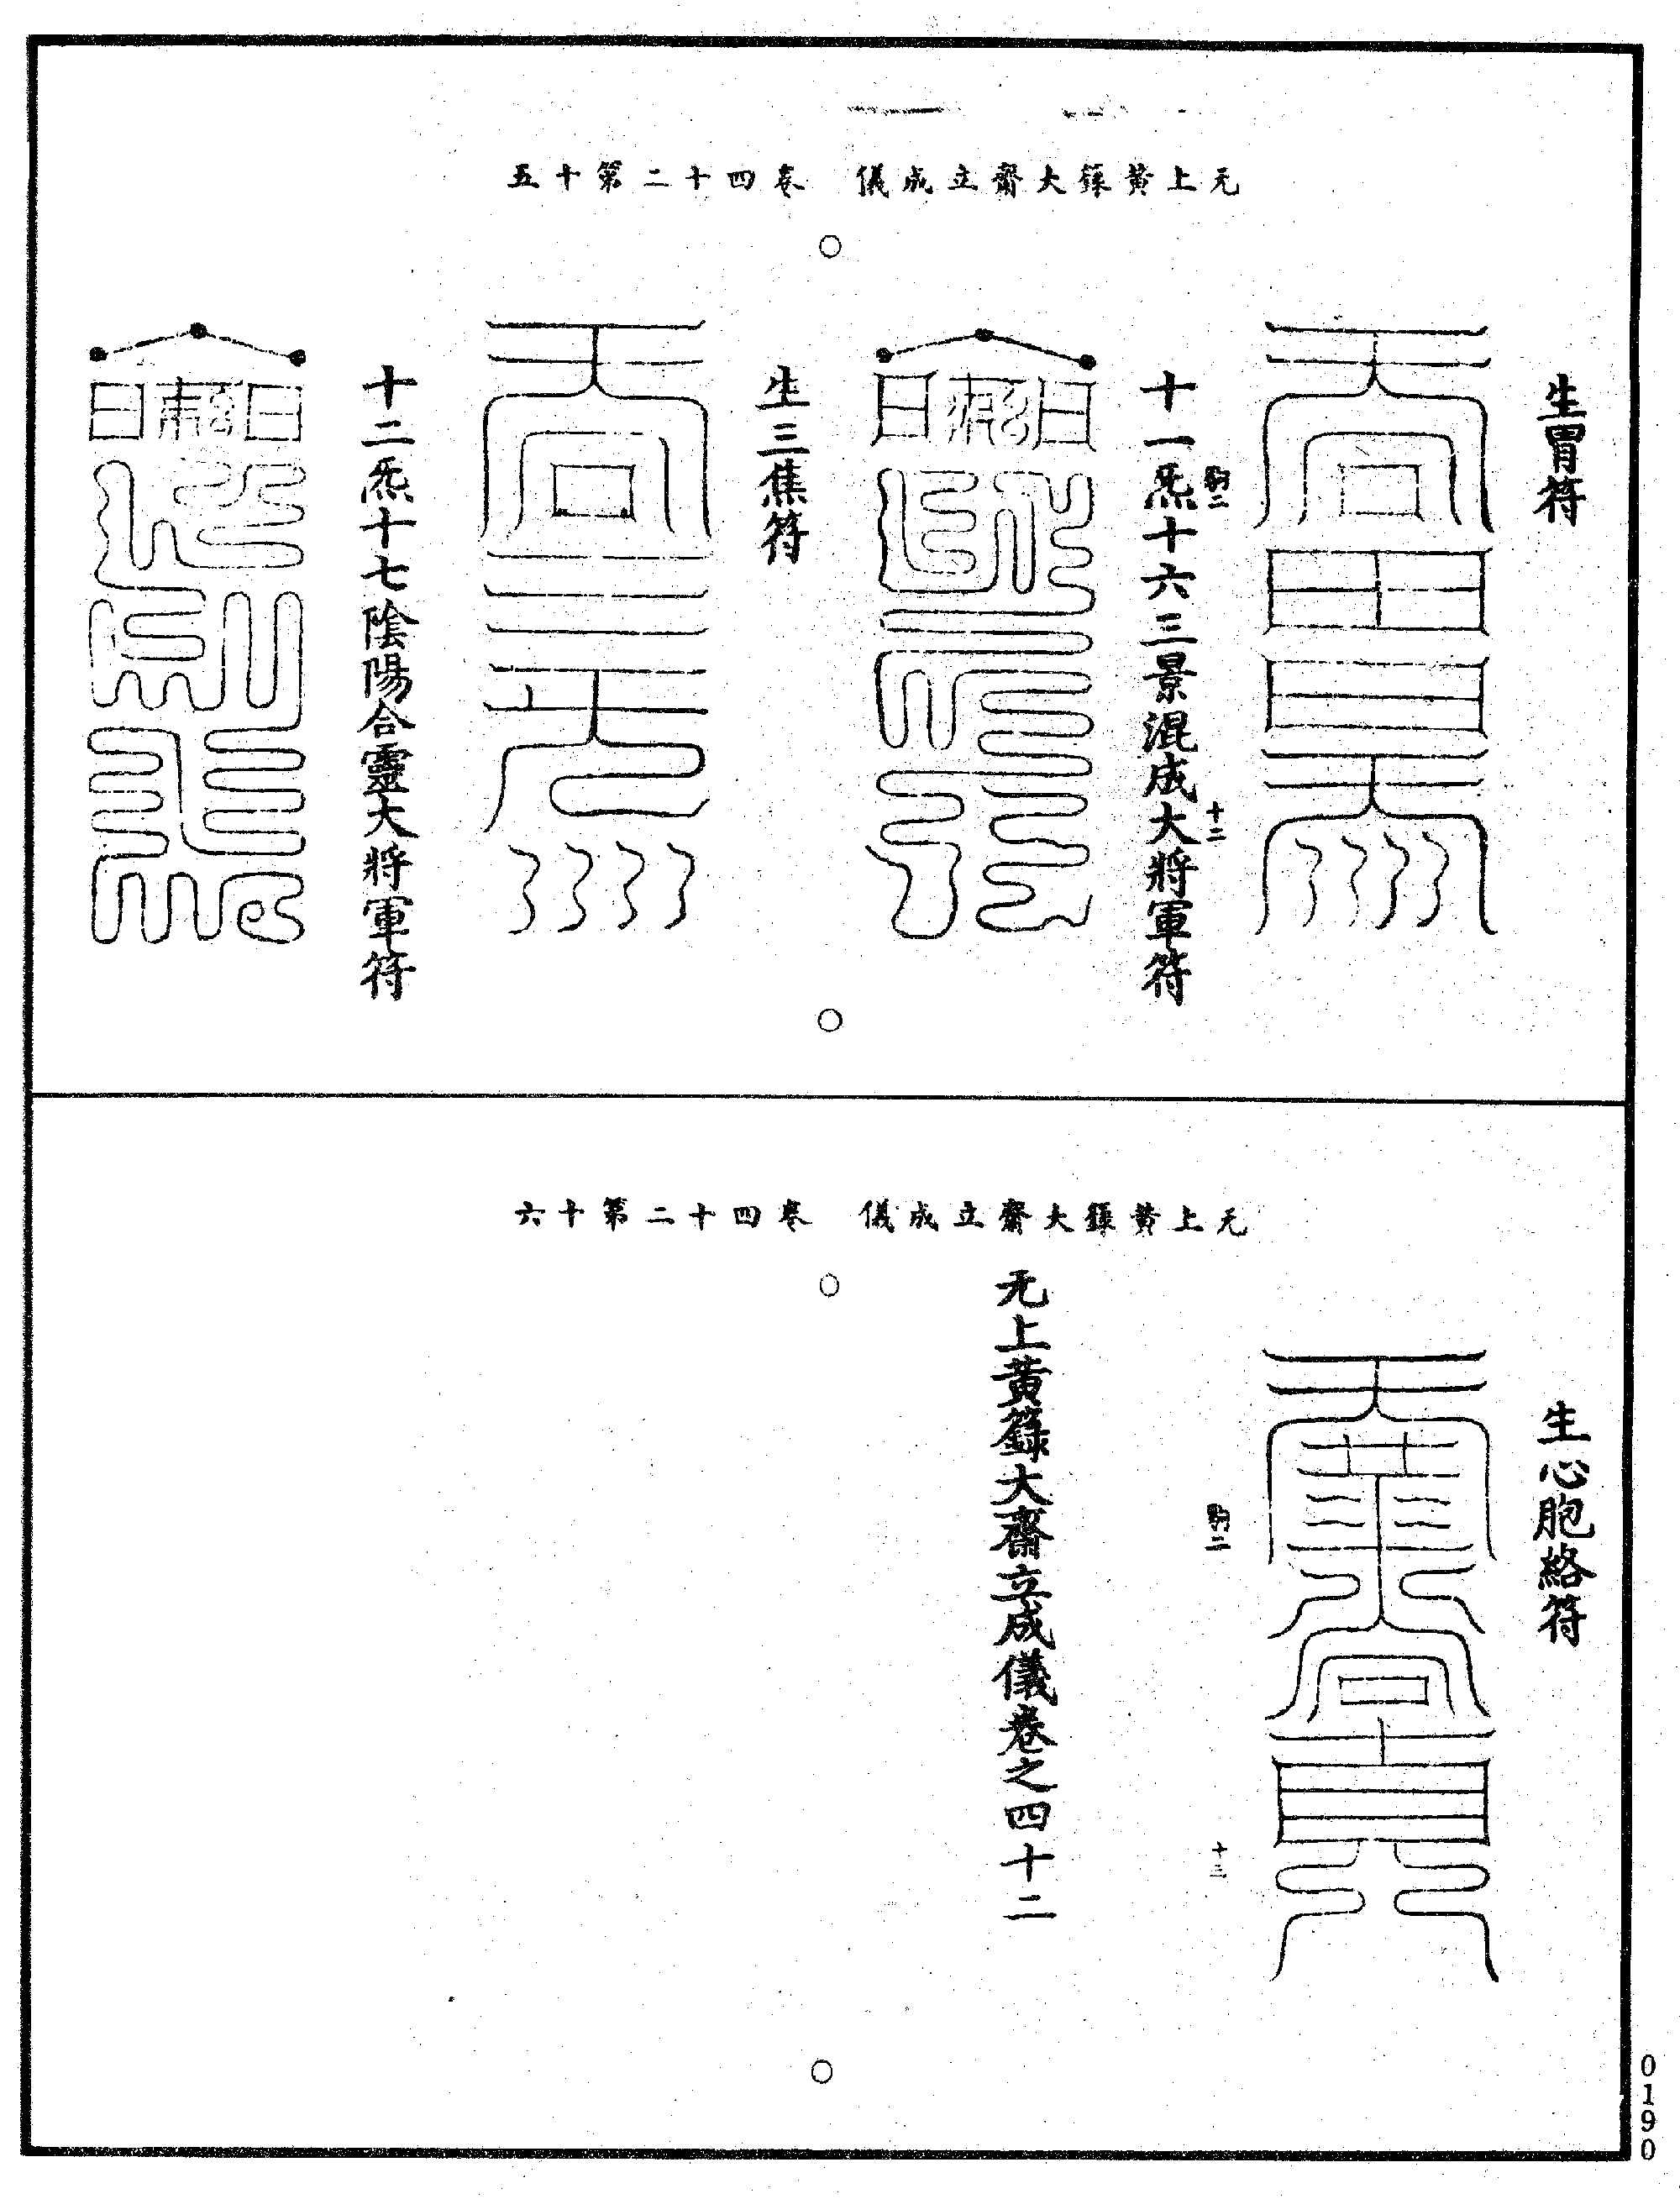 无上黃籙大齋立成儀　卷四十二第十五
生胃符
駒二
十二
十一炁十六三景混成大將軍符
生三焦符
十二炁十七陰陽合靈大將軍符
无上黃籙大齋立成儀　卷四十二第十六
生心胞絡符
駒二
十三
无上黃籙大齋立成儀卷之四十二
0190